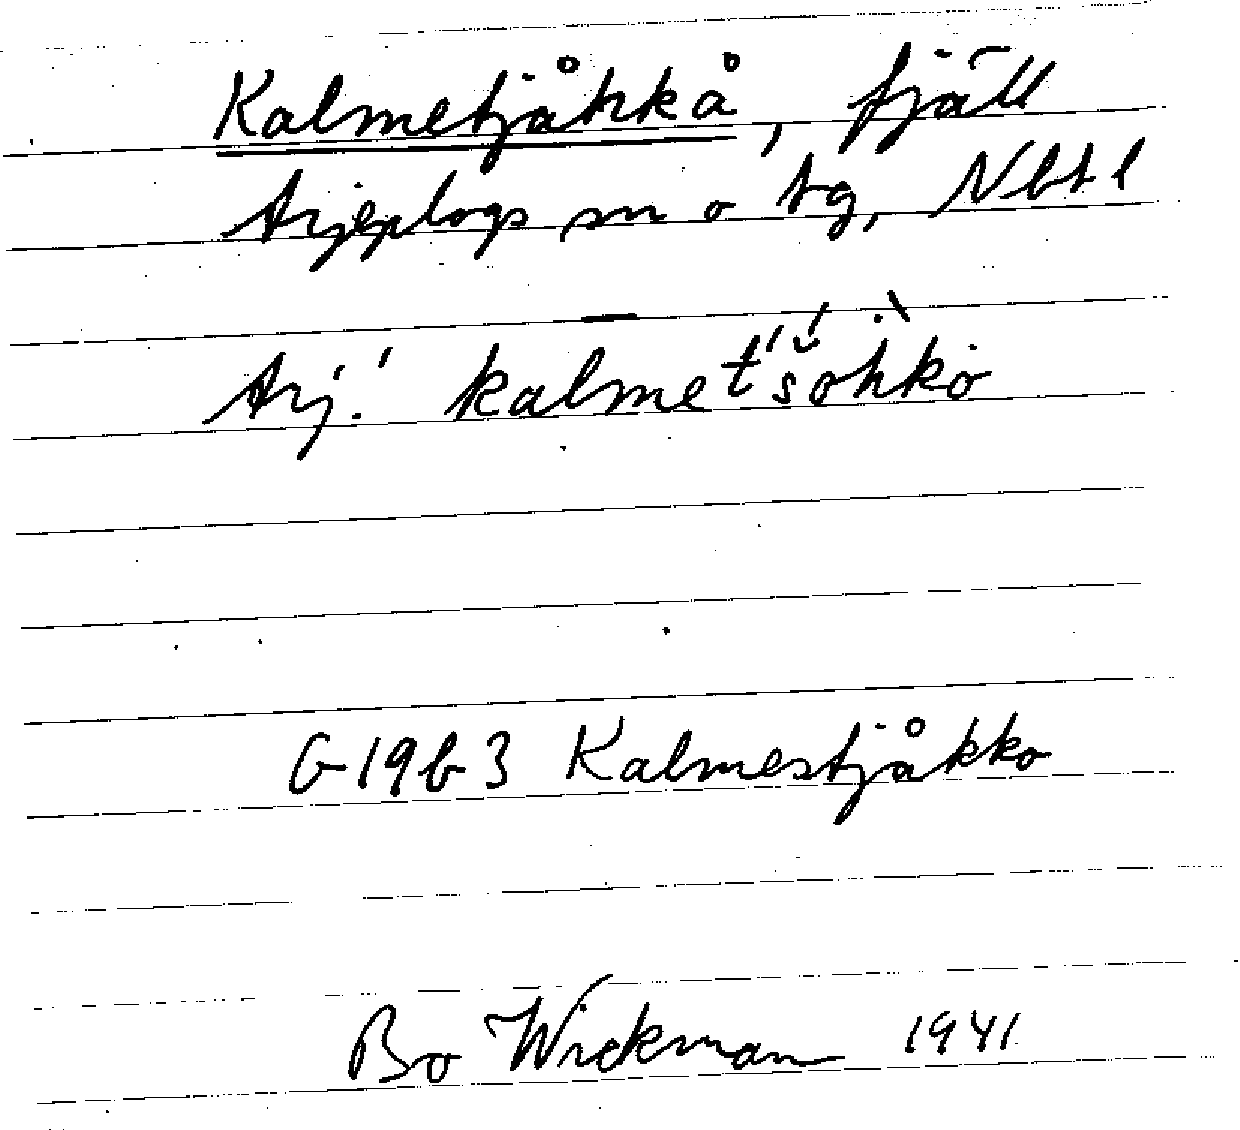 Kalmetjåhkå, fjäll
Arjeplogs sn o tg, Nbtl
Arj. kalmet́šòhkò
G 19 b 3 Kalmestjåkko
Bo Wickman 1941